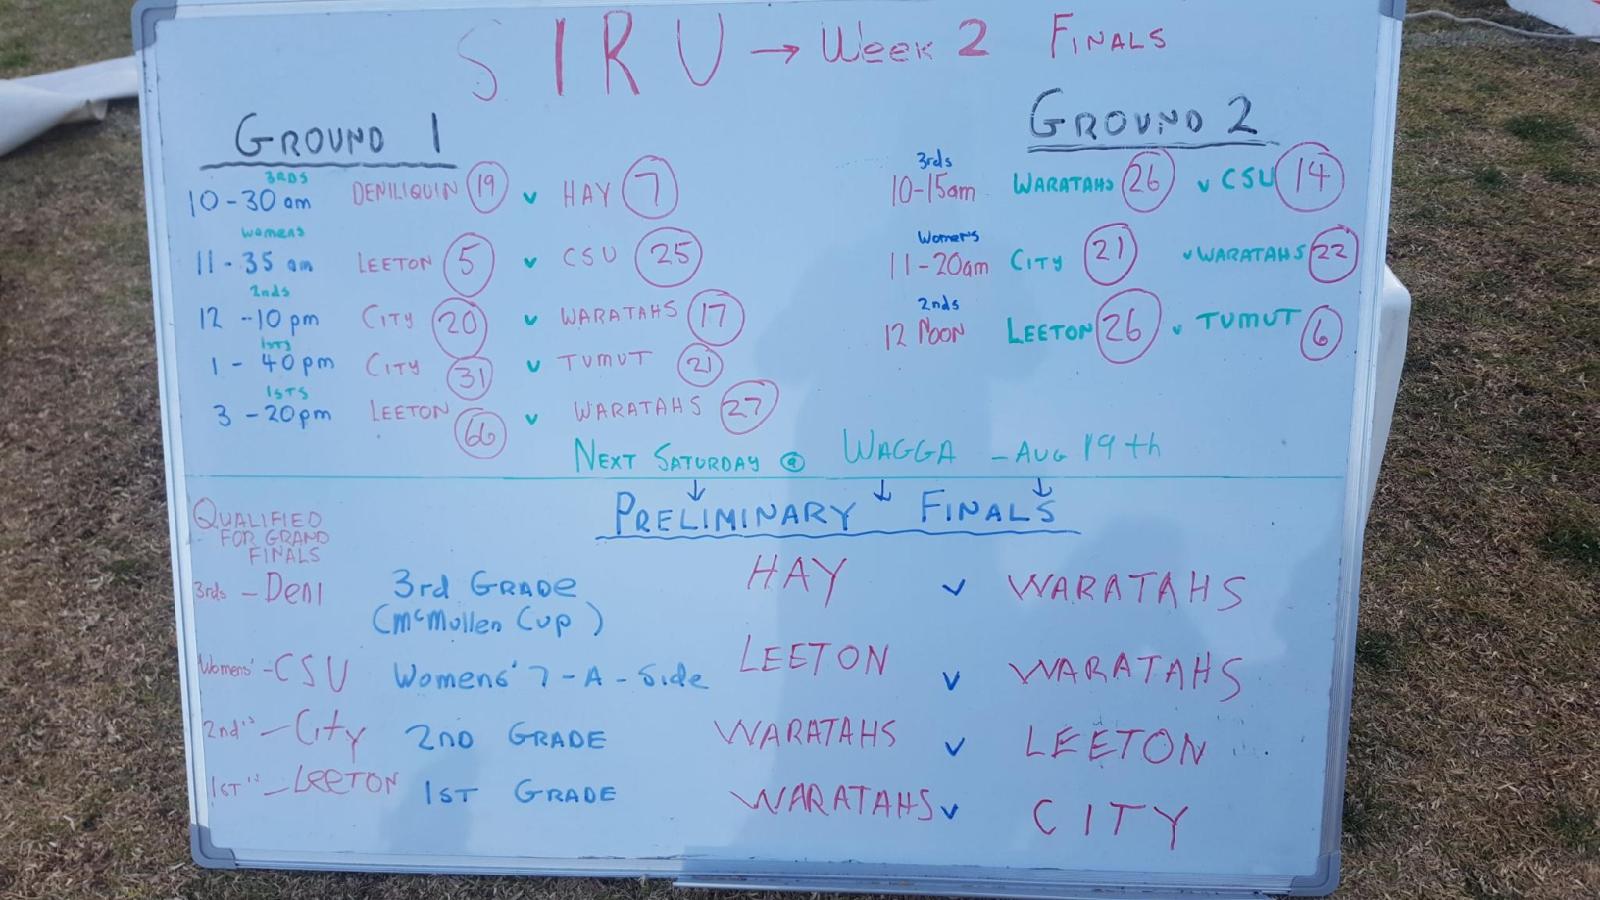 SIRU → Week 2 Finals
GROUND 1
3RDS
10-30 am DENILIQUIN 19 v HAY 7
Womens
11-35 am LEETON 5 v CSU 25
2nds
12-10 pm CITY 20 v WARATAHS 17
1sts
1-40 pm CITY 31 v TUMUT 21
1STS
3-20 pm LEETON 66 v WARATAHS 27
GROUND 2
3rds
10-15am WARATAHS 26 v CSU 14
Women's
11-20am CITY 21 v WARATAHS 22
2nds
12 Noon LEETON 26 v TUMUT 6
NEXT SATURDAY @ WAGGA - AUG 19th
PRELIMINARY FINALS
QUALIFIED
FOR GRAND
FINALS
3rds - Deni
Womens' - CSU
2nd's - City
1st's - LEETON
3rd GRADE HAY v WARATAHS
(McMullen Cup)
Womens' 7-A-Side LEETON v WARATAHS
2ND GRADE WARATAHS v LEETON
1ST GRADE WARATAHS v CITY